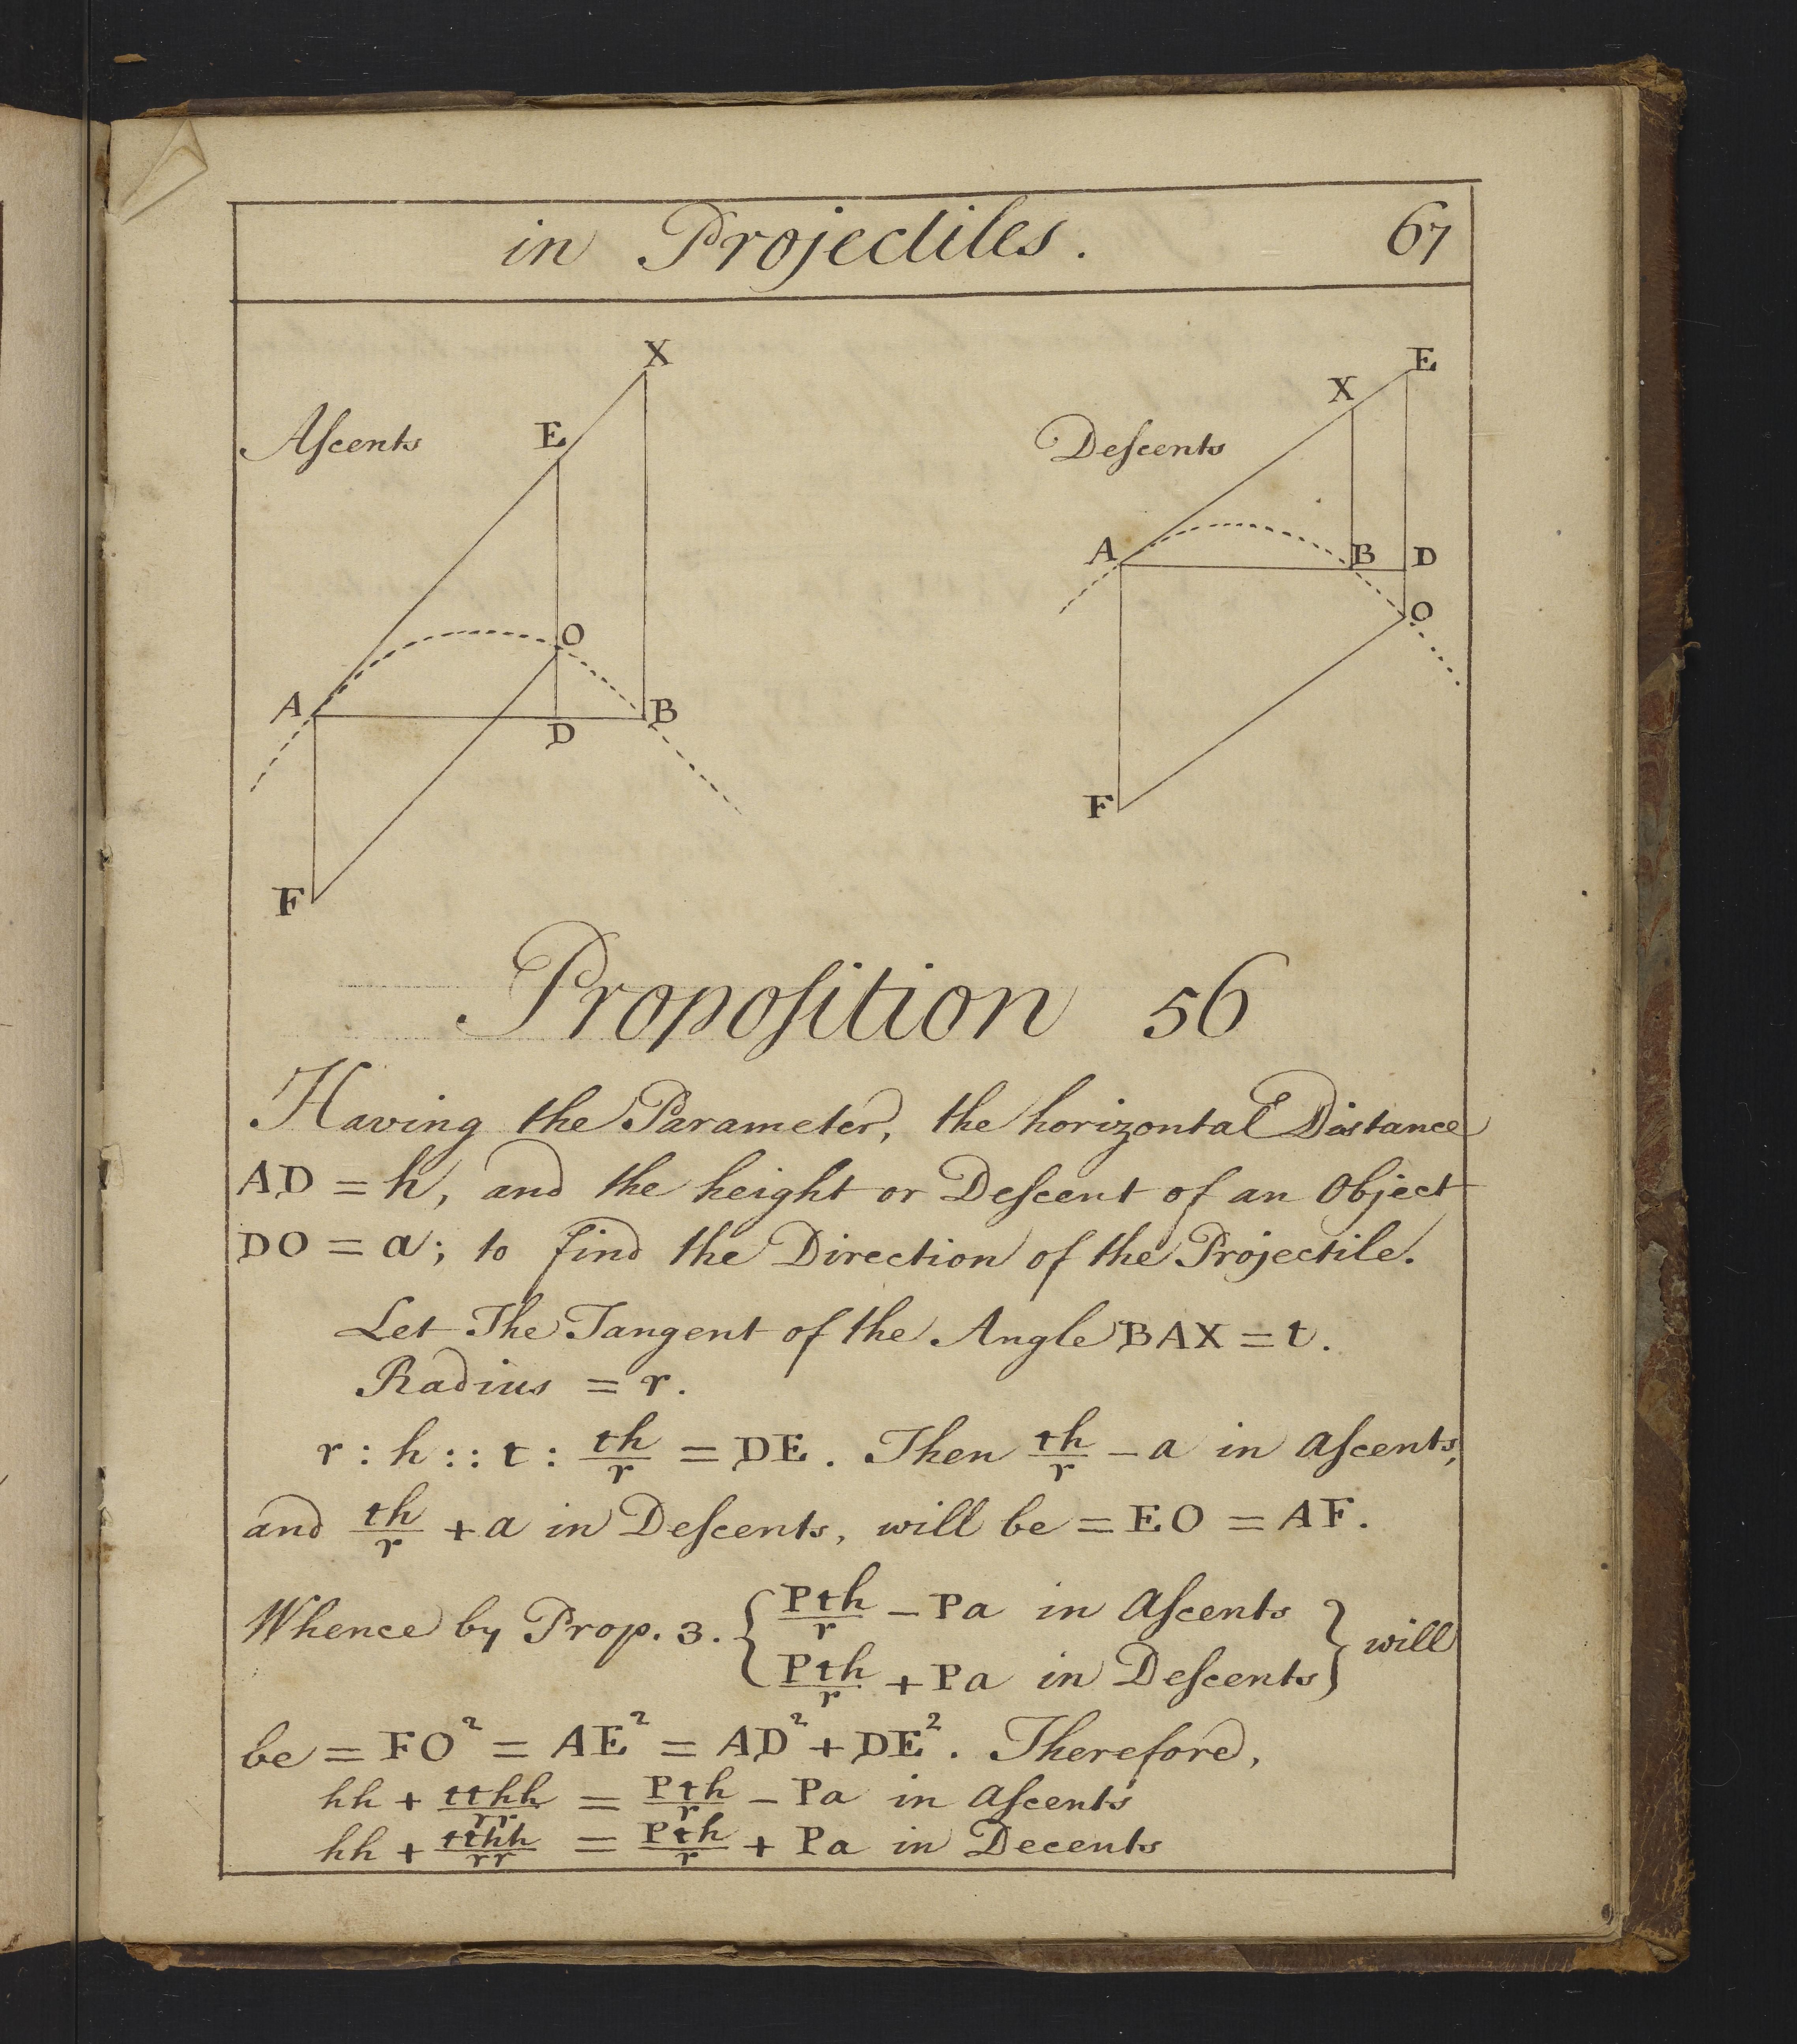 in Projectiles. 67
X
E
Aſcents
O
A
D
B
F
E
X
Deſcents
A
B
D
O
F
Propoſition 56
Having the Parameter, the horizontal Distance
AD = h, and the height or Deſcent of an Object
DO = a; to find the Direction of the Projectile.
Let The Tangent of the Angle BAX = t.
Radius = r.
r : h :: t : th/r = DE. Then th/r − a in aſcents,
and th/r + a in Deſcents, will be = EO = AF.
Whence by Prop. 3. { Pth/r − Pa in Aſcents
Pth/r + Pa in Deſcents } will
be = FO² = AE² = AD² + DE². Therefore,
hh + tthh/rr = Pth/r − Pa in aſcents
hh + tthh/rr = Pth/r + Pa in Decents